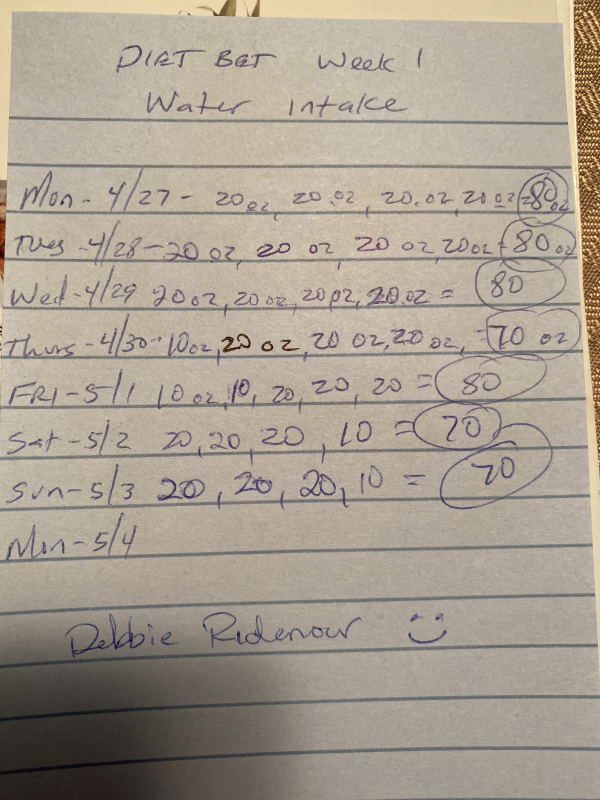 DIET BET Week 1
Water intake
Mon - 4/27 - 20 oz, 20 oz, 20 oz, 20 oz = 80 oz
Tues - 4/28 - 20 oz, 20 oz, 20 oz, 20 oz - 80 oz
Wed - 4/29 20 oz, 20 oz, 20 oz, 20 oz = 80
Thurs - 4/30 - 10 oz, 20 oz, 20 oz, 20 oz, - 70 oz
FRI - 5/1 10 oz, 10, 20, 20, 20 = 80
Sat - 5/2 20, 20, 20, 10 = 70
Sun - 5/3 20, 20, 20, 10 = 70
Mon - 5/4
Debbie Ridenour